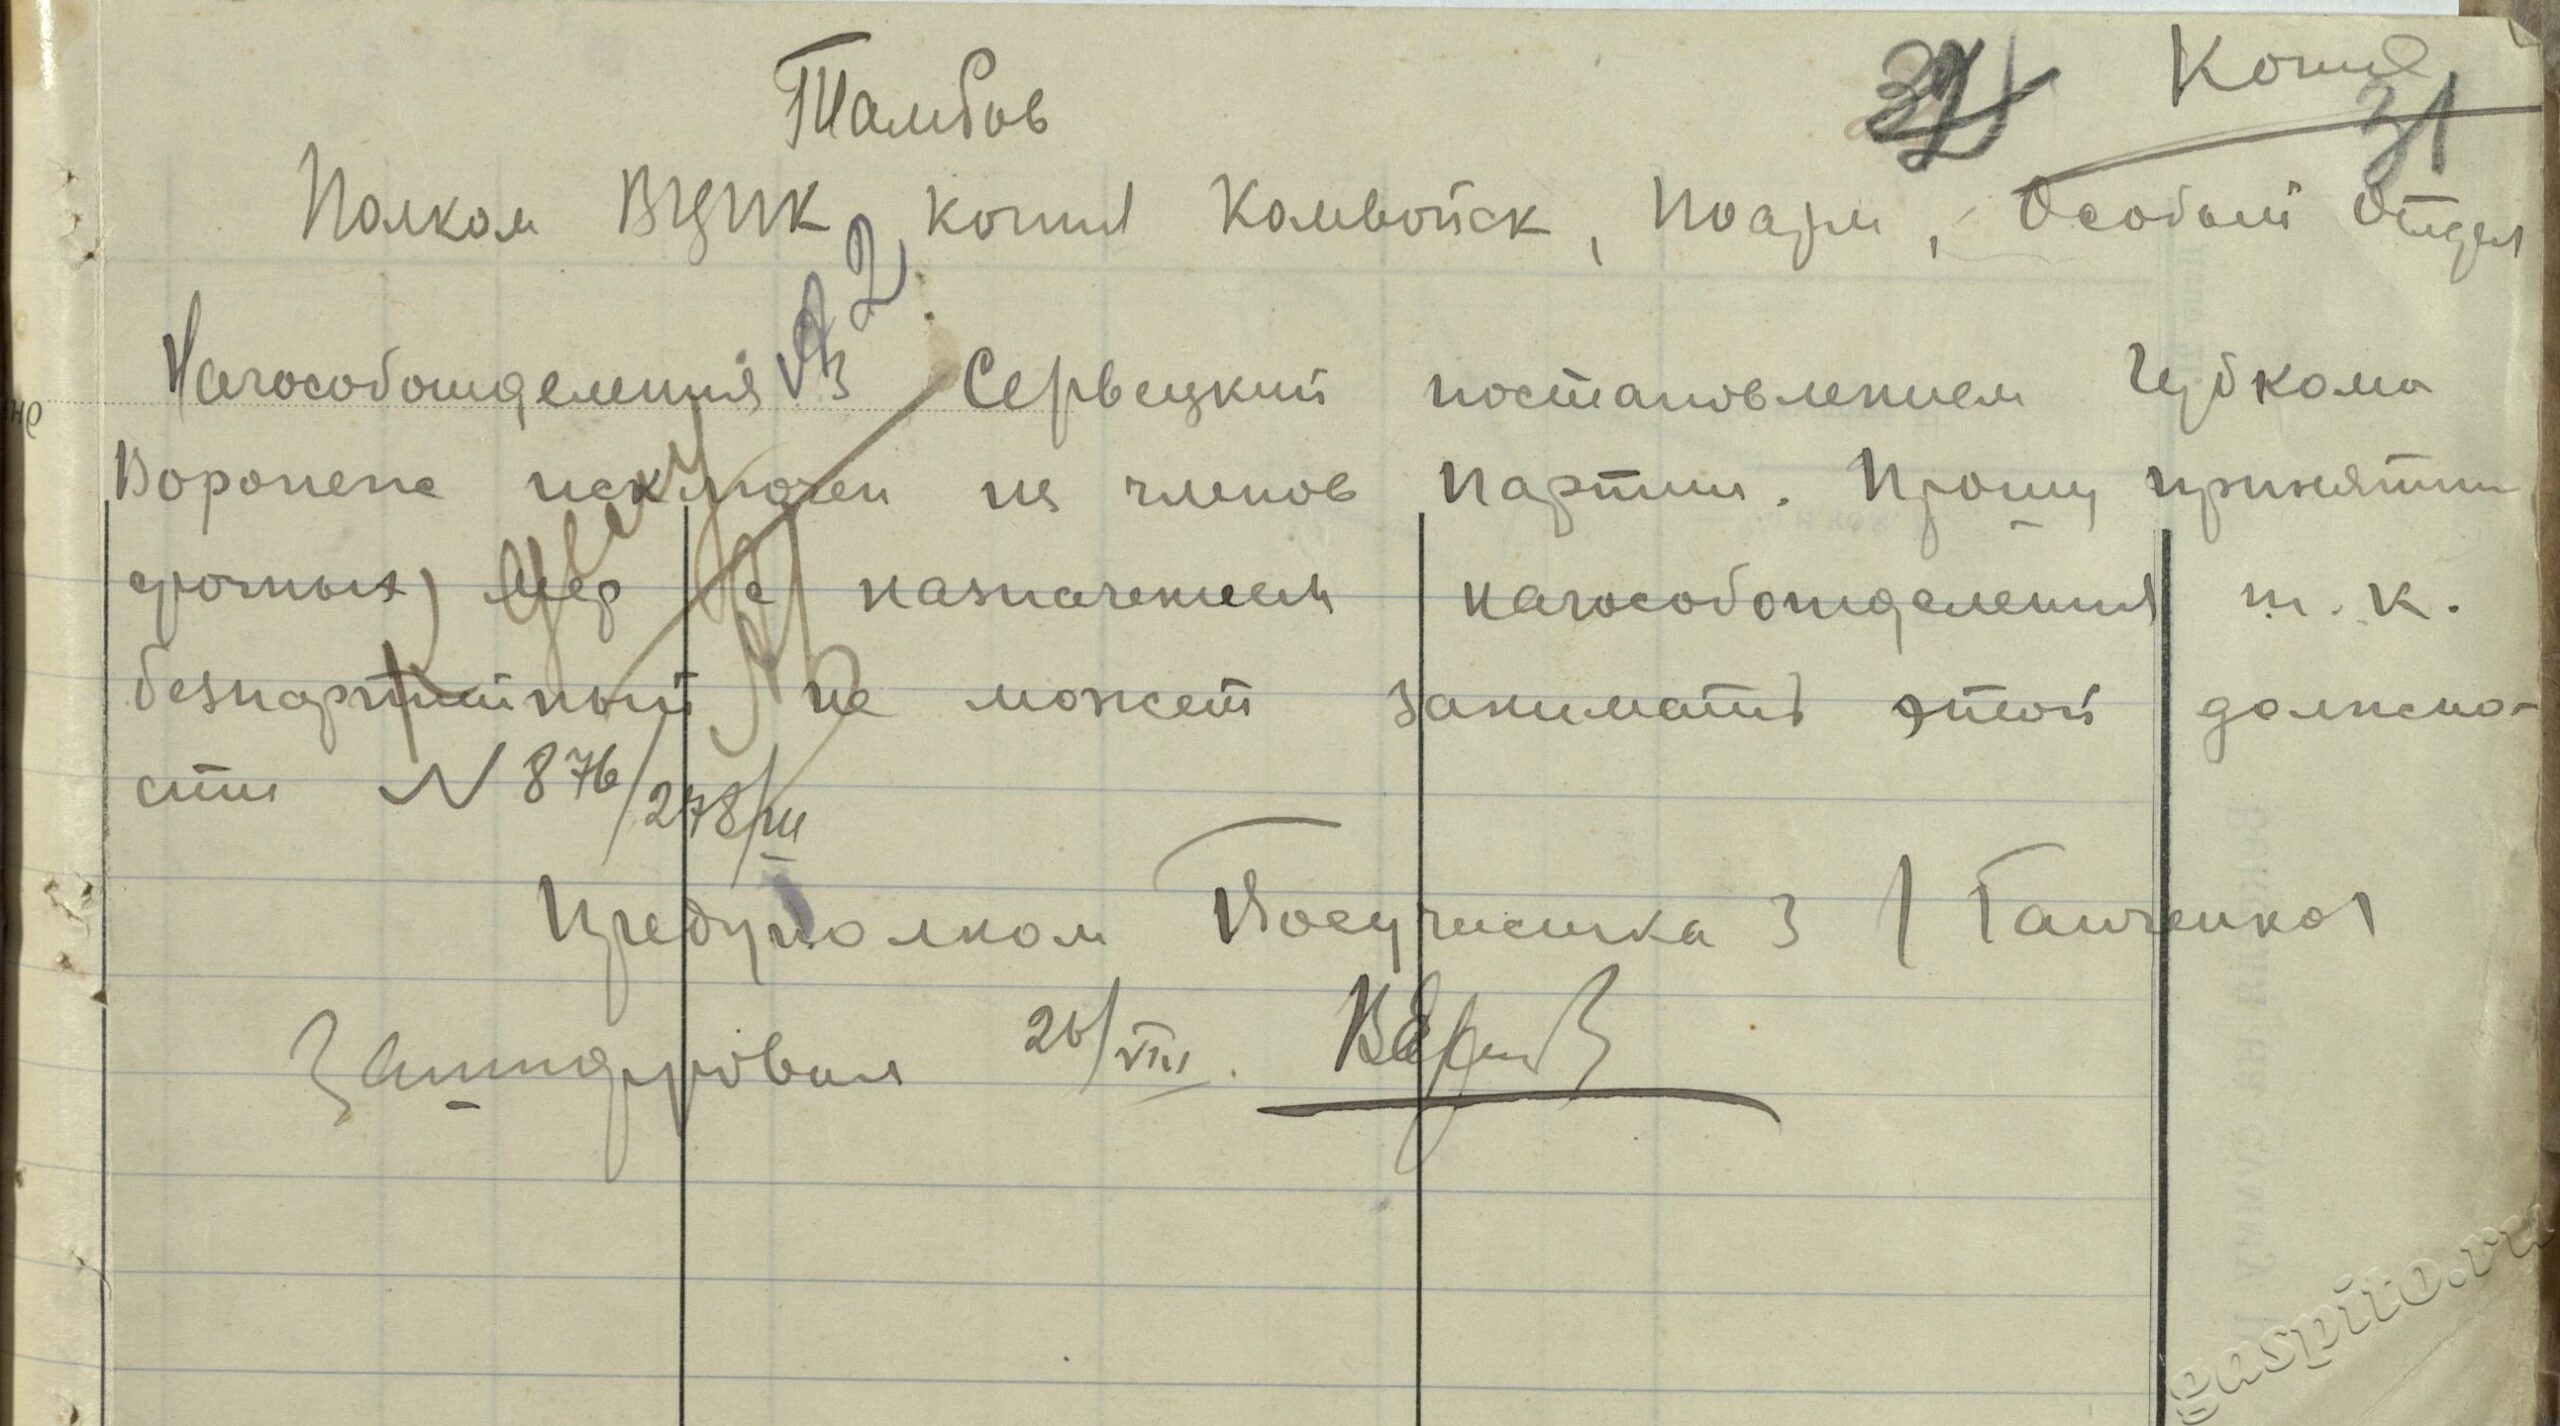 Копия
31
Тамбов
Полком ВЦИК копия Комвойск, Поарм, Особый Отдел
Начособотделения 3 Сервецкий постановлением Губкома
Воронеже исключен из членов партии. Прошу принятии
срочных мер с назначением начособотделения т.к.
безпартийный не может занимать этой должно-
сти N 876/278/ш
Предуполком Босучастка 3 / Ганченко /
Зашифровал 26/VIII.
gaspito.ru